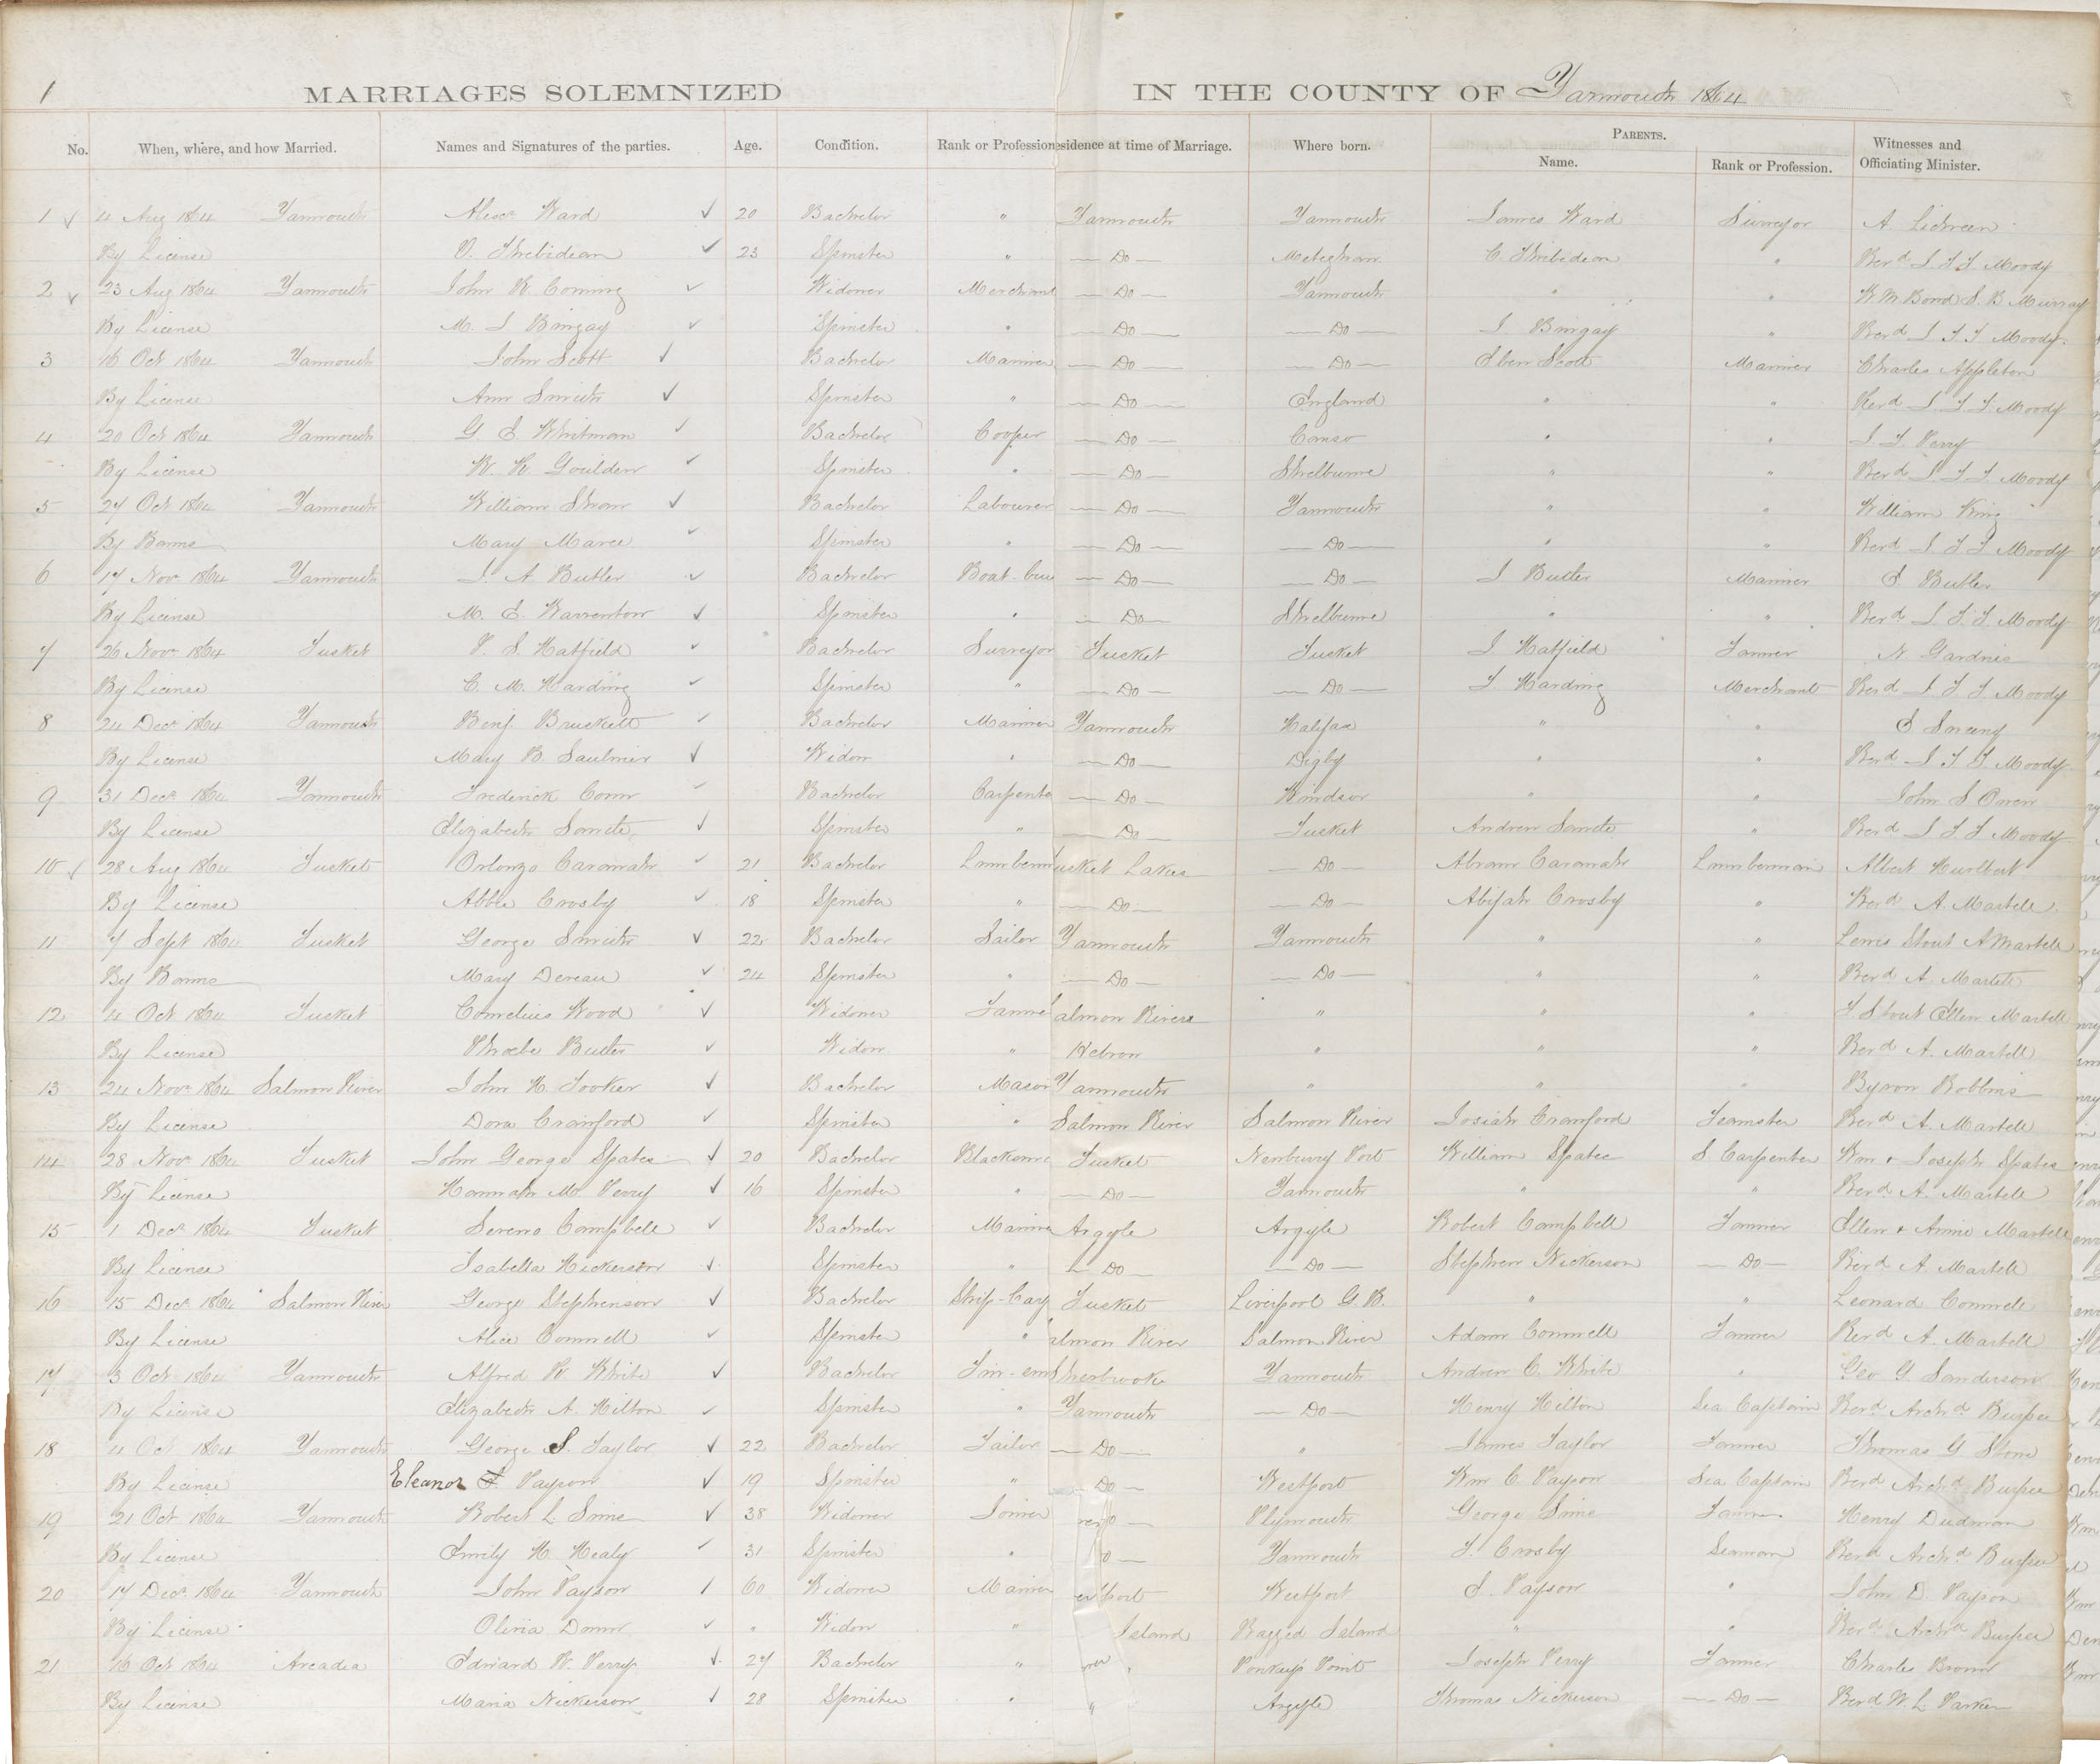 1
MARRIAGES SOLEMNIZED IN THE COUNTY OF Yarmouth 1864
No. When, where, and how Married. Names and Signatures of the parties. Age. Condition. Rank or Profession esidence at time of Marriage. Where born. PARENTS. Witnesses and
Name. Rank or Profession. Officiating Minister.
1 4 Aug 1864 Yarmouth Alexr Ward 20 Bachelor " Yarmouth Yarmouth James Ward Surveyor A
By License 23 Spinster " Do Meteghan C. " Revd J. T. T. Moody
2 23 Aug 1864 Yarmouth John W. Widower Merchant Do Yarmouth " " W M Bond S. B Murray
By License M. J Bingay Spinster " Do Do J Bingay " Revd J T T Moody.
3 16 Oct 1864 Yarmouth John Scott Bachelor Mariner Do Do Eben Scott Mariner Charles Appleton
By License Ann Smith Spinster " Do England " " Revd J. T. T. Moody
4 20 Oct 1864 Yarmouth G. E. Whitman Bachelor Cooper Do Canso " " J T Perry
By License W. H Goulden Spinster " Do Shelburne " " Revd J. T. T Moody
5 27 Oct 1864 Yarmouth William Bachelor Labourer Do Yarmouth " " William King
By Banns Mary Spinster " Do Do " " Revd J. T T Moody
6 17 Nov 1864 Yarmouth J. A. Butler Bachelor Boat-bui Do Do J Butler Mariner E Butler
By License M. E. Warrenton Spinster " Do Shelburne " " Revd J. T. T. Moody
7 26 Novr 1864 Tusket P. S. Hatfield Bachelor Surveyor Tusket Tusket J Hatfield Farmer N
By License C. M. Harding Spinster " Do Do T Harding Merchant Revd J T T Moody
8 24 Decr 1864 Yarmouth Benj. Bachelor Mariner Yarmouth Halifax " " E
By License Mary B. Saulnier Widow " Do Digby " " Revd J T T Moody
9 31 Decr 1864 Yarmouth Frederick Bachelor Carpente Do Windsor " " John S Owen
By License Elizabeth Spinster " Do Tusket Andrew " Revd J T T Moody
10 28 Aug 1864 Tusket Orlonzo Caranah 21 Bachelor Lumberm usket Lakes Do Abram Caranah Lumberman Albert Hurlbert
By License Abbie Crosby 18 Spinster " Do Do Abijah Crosby " Revd A. Martell
11 7 Sept 1864 Tusket George Smith 22 Bachelor Sailor Yarmouth Yarmouth " " Lewis Stout A Martell
By Banns Mary 24 Spinster " Do Do " " Revd A. Martell
12 4 Oct 1864 Tusket Cornelius Wood Widower Farme almon River " " " Stout Ellen Martell
By License Phoebe Butler Widow " Hebron " " " Revd A. Martell
13 24 Novr 1864 Salmon River John H. Tooker Bachelor Mason Yarmouth " " " Byron Robbins
By License Dora Crawford Spinster " Salmon River Salmon River Josiah Crawford Teamster Revd A. Martell
14 28 Novr 1864 Tusket John George Spates 20 Bachelor Blacksmi Tusket Newbury Port William Spates S. Carpenter Wm & Joseph Spates
By License Hannah M. Perry 16 Spinster " Do Yarmouth " " Revd A. Martell
15 1 Decr 1864 Tusket Sereno Campbell Bachelor Marine Argyle Argyle Robert Campbell Farmer Ellen & Annie Martell
By License Isabella Nickerson Spinster " Do Do Stephen Nickerson Do Revd A. Martell
16 15 Decr 1864 Salmon River George Stephenson Bachelor Ship-Carp Tusket Liverpool G. B. " " Leonard
By License Alice Spinster " almon River Salmon River Adam Farmer Revd A. Martell
17 3 Oct 1864 Yarmouth Alfred W. White Bachelor Tin-smi herbrooke Yarmouth Andrew C. White " Geo G Sanderson
By License Elizabeth A. Hilton Spinster " Yarmouth Do Henry Hilton Sea Captain Revd Archd Burpee
18 4 Oct 1864 Yarmouth George S. Taylor 22 Bachelor Tailor Do " James Taylor Farmer Thomas G Stone
By License Eleanor F. Payson 19 Spinster " Do Westport Wm C. Payson Sea Captain Revd Archd Burpee
19 21 Oct 1864 Yarmouth Robert L Sims 38 Widower Joiner o Plymouth George Sims Farmer Henry Dudman
By License Emily H. Healy 31 Spinster " o Yarmouth T. Crosby Seaman Revd Archd Burpee
20 17 Decr 1864 Yarmouth John Payson 60 Widower Mariner port Westport E. Payson " John D. Payson
By License Olivia Widow " Island Ragged Island " " Revd Archd Burpee
21 16 Oct 1864 Arcadia Edward W. Perry 27 Bachelor " " Point Joseph Perry Farmer Charles Brown
By License Maria Nickerson 28 Spinster " " Argyle Thomas Nickerson Do Revd W. L. Parker